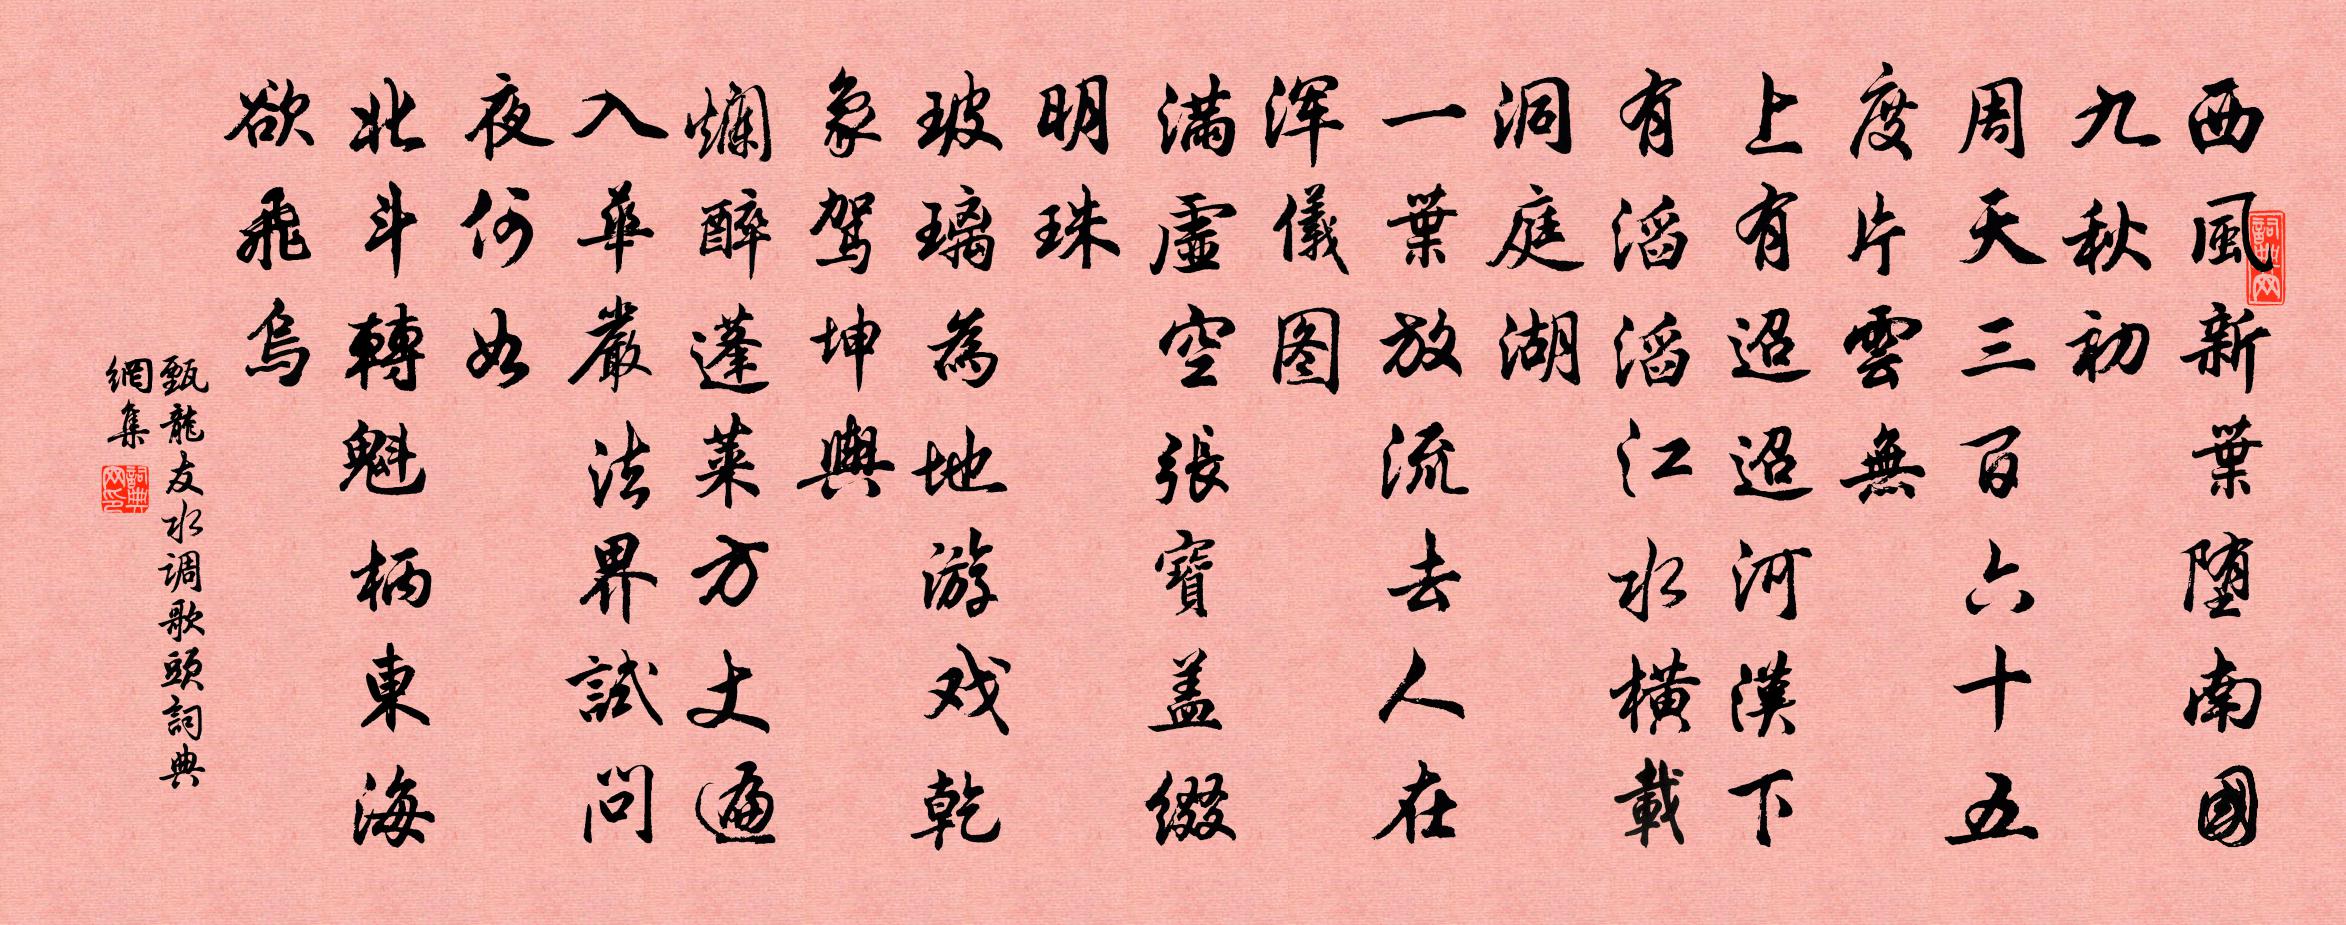 西風新葉堕南國
九秋初
周天三百六十五
度片雲無
上有迢迢河漢下
有滔滔江水橫載
洞庭湖
一葉放流去人在
浑儀图
滿虛空張寶盖缀
明珠
玻璃為地游戏乾
象駕坤輿
爛醉蓬萊方丈遍
入華嚴法界試問
夜何如
北斗轉魁柄東海
欲飛烏
甄龍友水调歌頭詞典
網集
詞典网
詞典网印